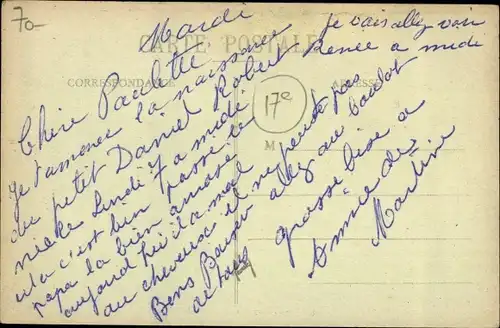 70-
Mardi
CARTE POSTALE
CORRESPONDANCE
ADRESSE
17e
Chère Paulette
Je t'annonce la naissance
du petit Daniel Robert
Lundi 7 a midi
c'est bien passé le
papa la bien
aujourd'hui il a mal
au cheveux il ne peut pas
Bons Baisers allez au boulot
de tous
Je vais allez voir
Renée a midi
grosse bise a
Annie de
Martine